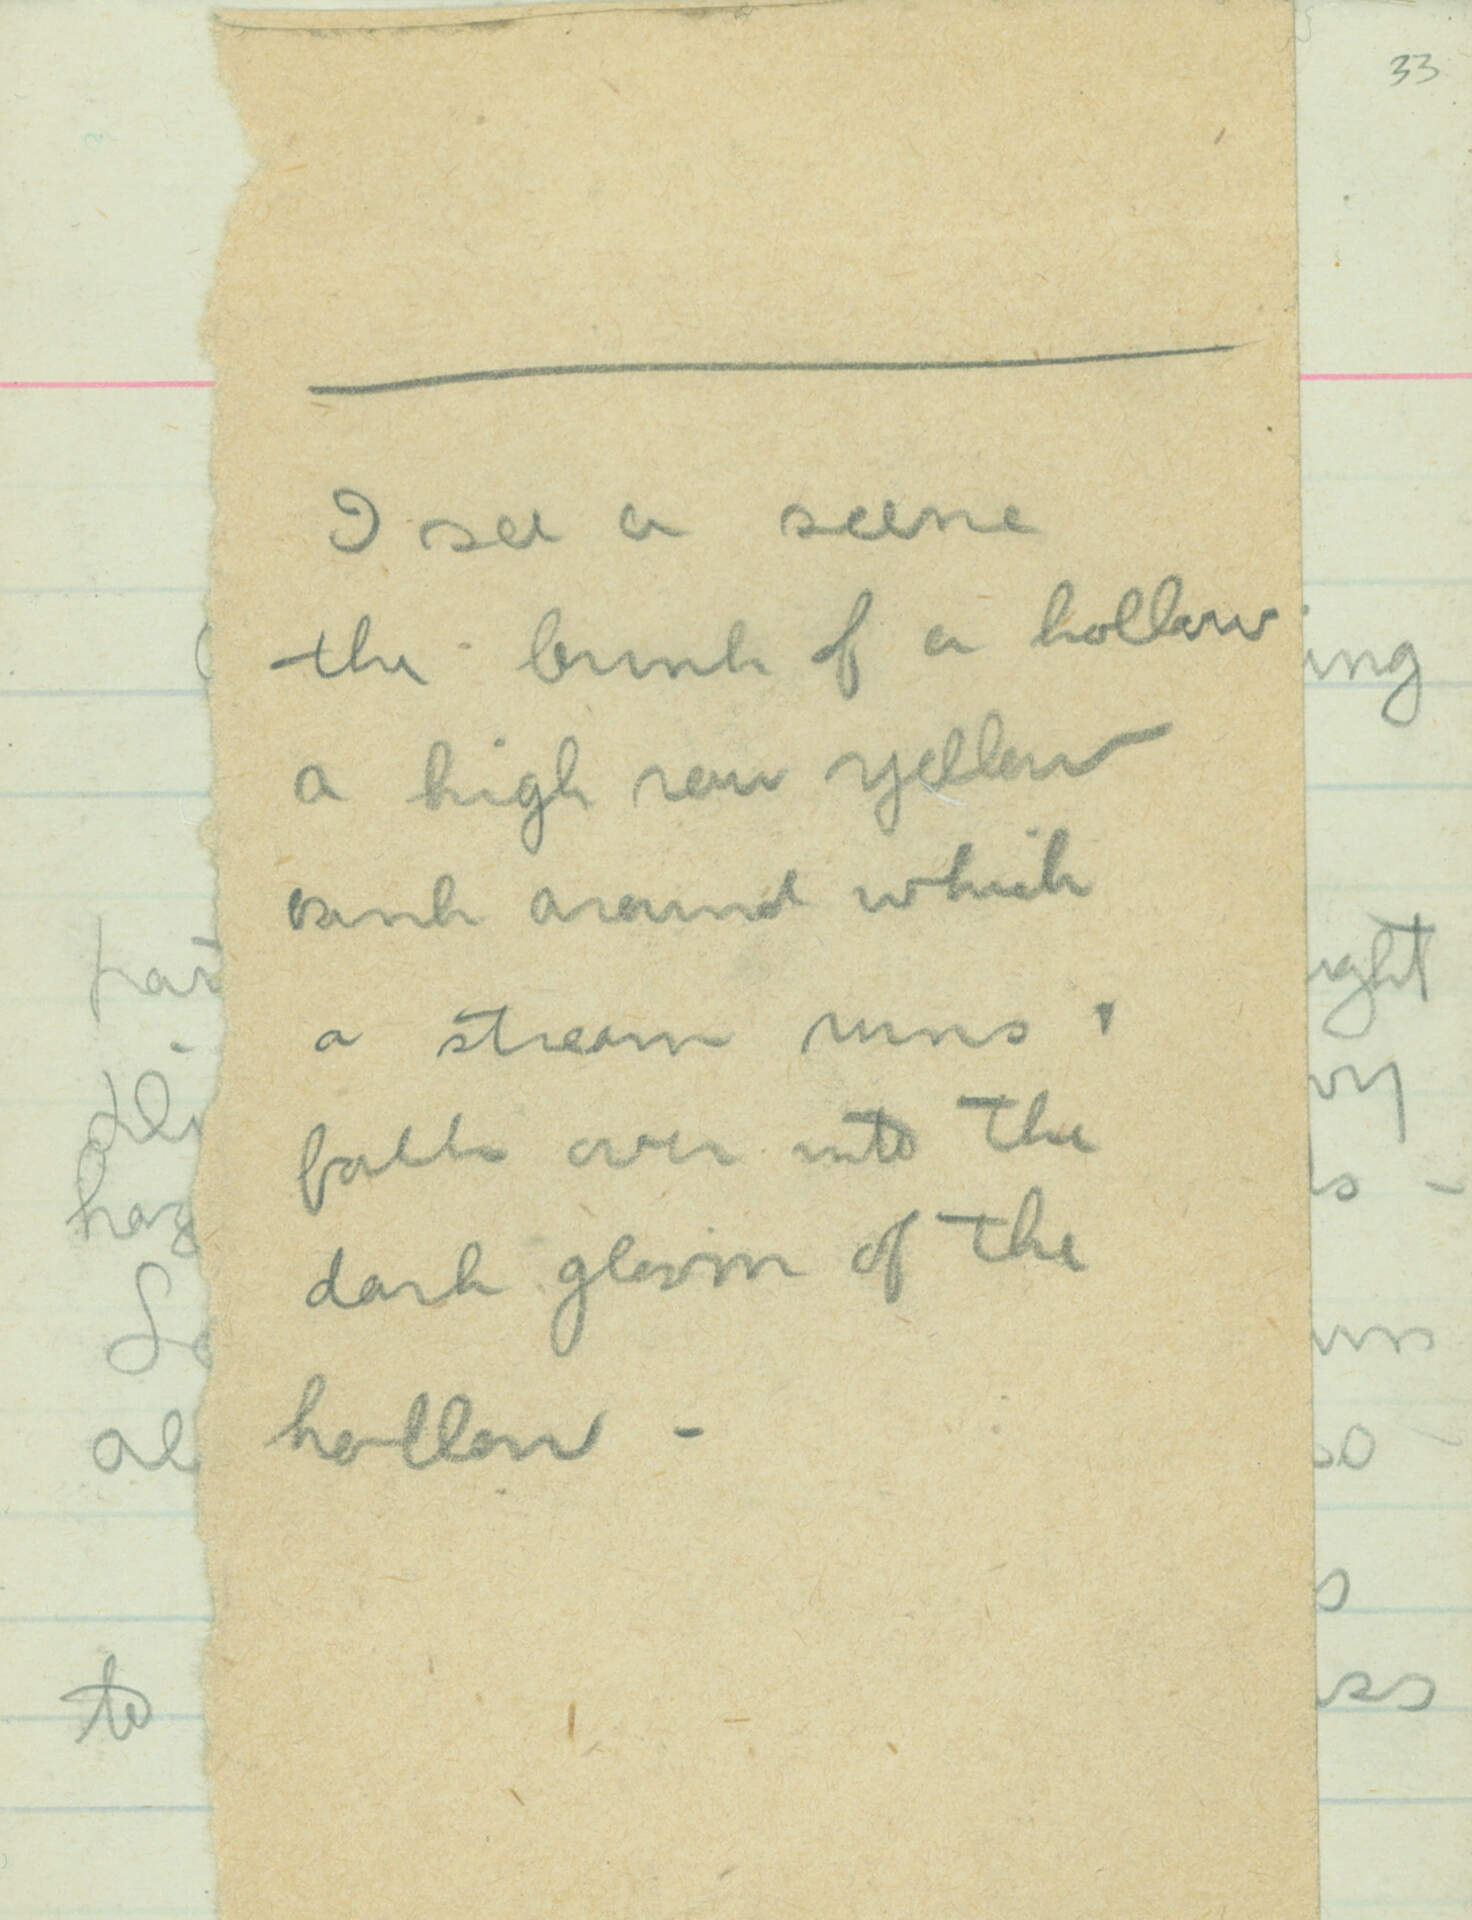 33
I see a scene
the brink of a hollow
a high raw yellow
bank around which
a stream runs,
falls over into the
dark gloom of the
hollow -
ing
ight
haz
al
so -
to